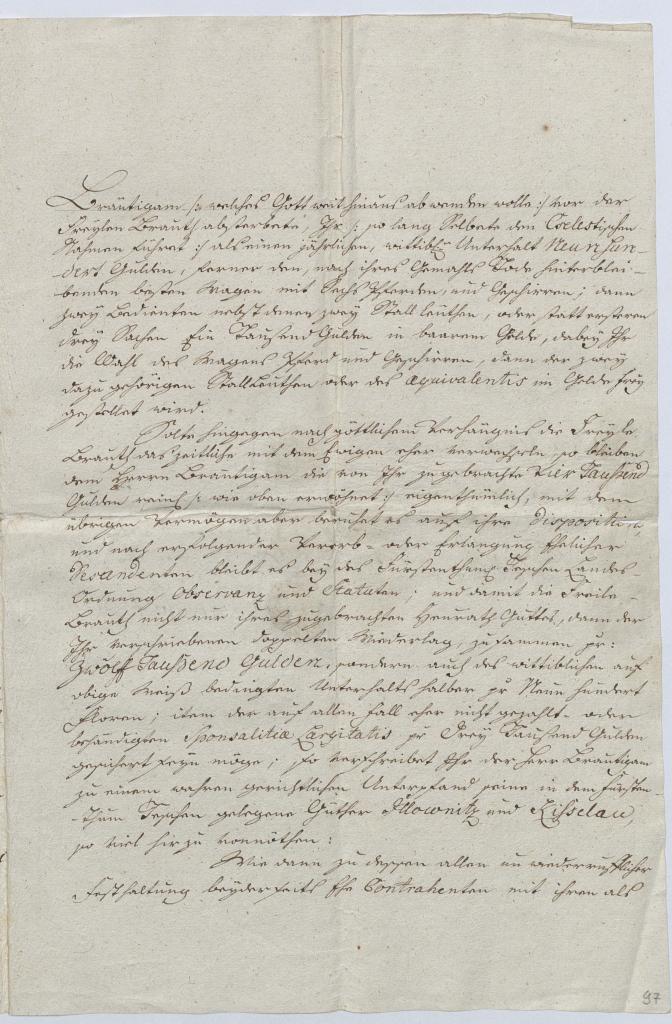 Bräutigam /: welches Gott weit hinaus abwenden wolle :/ vor der
Freylen Brauth absterbete, Ihr /: so lang Selbete den Cselestischen
Nahmen führet :/ als einen jährlichen, wittibl. Unterhalt Neun hun-
dert Gulden, ferner den, nach ihres Gemahls Tode hinterblei-
benden besten Wagen mit Sechs Pferden, und Geschirren; dann
zwey Bedienten nebst denen zwey Stall Leüthen, oder statt ersteren
drey Sachen Ein Tausend Gulden in baarem Gelde, dabey Ihr
die Wahl des Wagens Pferd und Geschirren, dann der zwey
dazu gehörigen Stall Leüthen oder des æquivalentis im Gelde frey
gestellet wird.
Solte hingegen nach göttlichem Verhängnis die Freyle
Brauth das zeitliche mit dem Ewigen eher verwechseln, so bleiben
dem Herrn Bräutigam die von Ihr zugebrachte Vier Taußend
Gulden reinl. /: wie oben erwöhnet :/ eigenthümlich, mit dem
übrigen Vermögen aber beruhet es auf ihre Disposition,
und nach erfolgender Vererb- oder Erlangung Ehelicher
Desandenten bleibt es bey des Fürstenthums Teschen Landes-
Ordnung Observanz und Statuten; und damit die Freile-
Brauth nicht nur ihres zugebrachten Heurath Guttes, dann der
Ihr verschriebenen doppelten Wiederlag, zusammen pr:
Zwölff Taußend Gulden, sondern auch des wittiblichen auf
obige Weiß bedingten Unterhalts halber pr Neun hundert
Floren; item der auf allen Fall eher nicht gezahlt- oder
behändigten Sponsalitiæ Largitatis pr Drey Tausend Gulden
gesichert seyn möge; so verschreibet Ihr der Herr Bräutigam
zu einem wahren gerichtlichen Unterpfand seine in dem Fürsten-
-thum Teschen gelegene Güther Illownitz und Kisselau,
so viel hirzu vonnöthen:
Wie dann zu dessen allen unwiederrufflicher
Festhaltung beyderseits Ehe Contrahenten mit ihren als
97